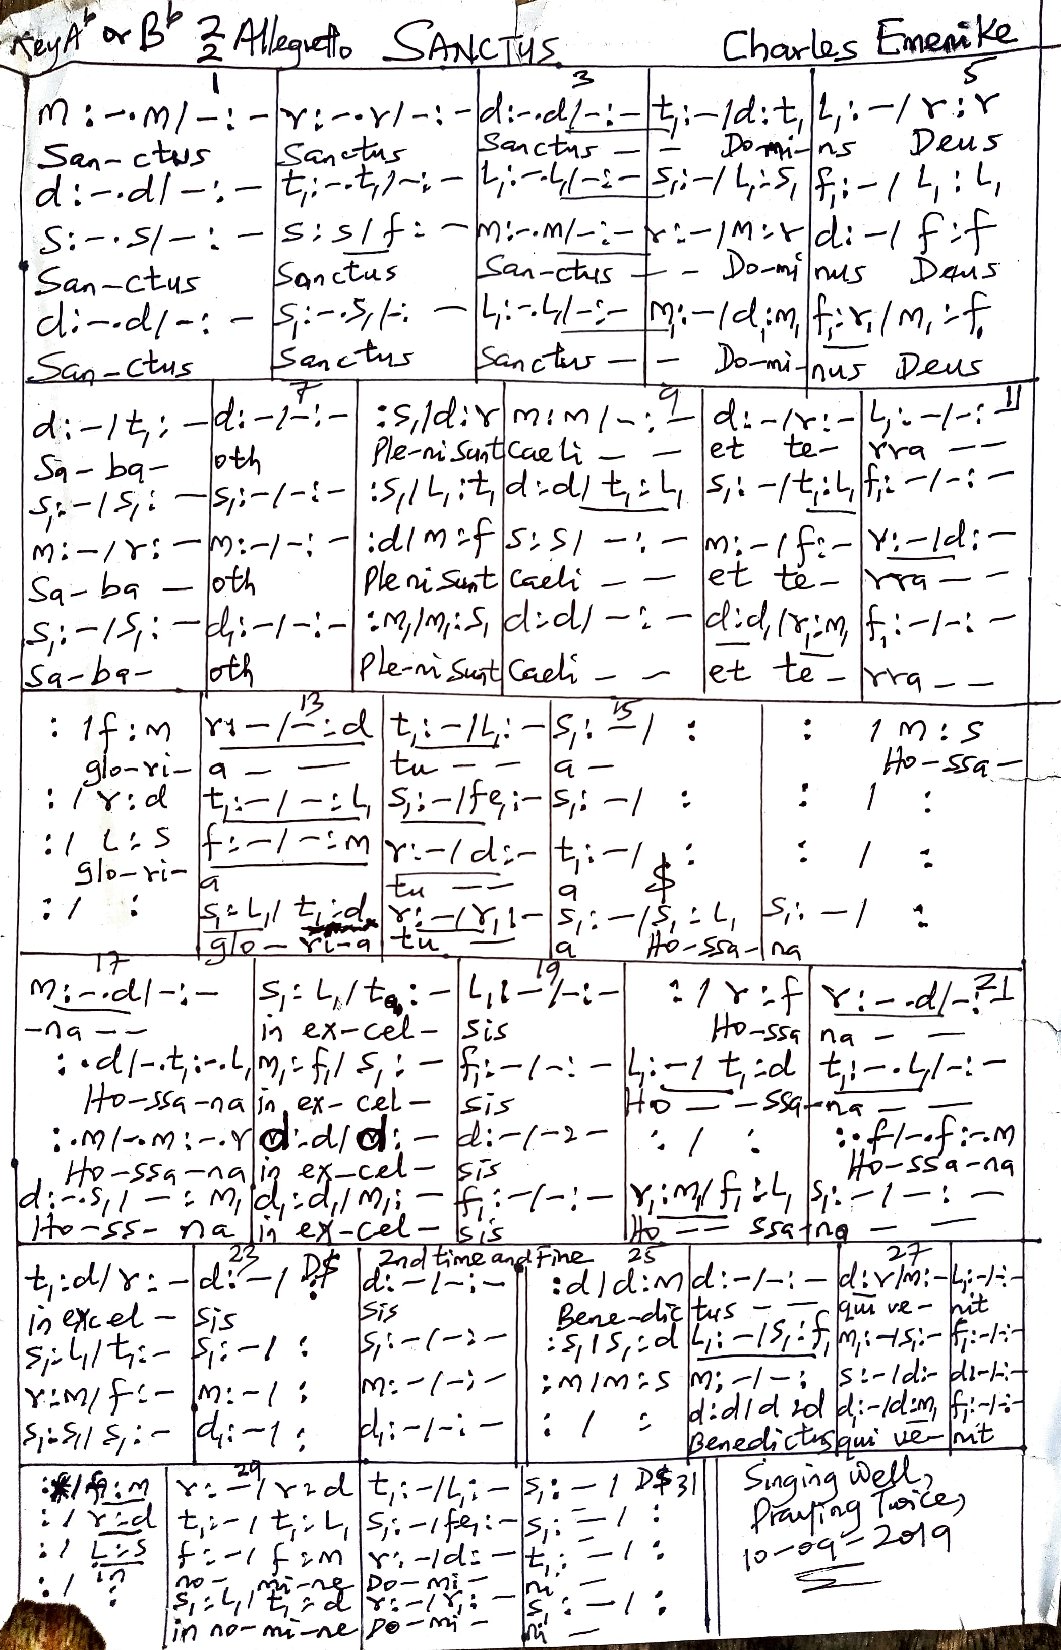 Key Aᵇ or Bᵇ 2/2 Allegretto SANCTUS Charles Emenike
1 3 5
m:-.m/-:- r:-.r/-:- d:-.d/-:- t,:-/d:t, L,:-/r:r
San-ctus Sanctus Sanctus - - Do-mi-ns Deus
d:-.d/-:- t,:-.t,/-:- L,:-.L,/-:- s,:-/L,:s, f,:-/L,:L,
s:-.s/-:- s:s/f:- m:-.m/-:- r:-/m:r d:-/f:f
San-ctus Sanctus San-ctus - - Do-mi nus Deus
d:-.d/-:- s,:-.s,/-:- L,:-.L,/-:- m,:-/d,:m, f,:r,/m,:f,
San-ctus Sanctus Sanctus - - Do-mi-nus Deus
7 9 11
d:-/t,:- d:-/-:- :s,/d:r m:m/-:- d:-/r:- L,:-/-:-
Sa-ba- oth Ple-ni sunt caeli - - et te- rra - -
s,:-/s,:- s,:-/-:- :s,/L,:t, d:d/t,:L, s,:-/t,:L, f,:-/-:-
m:-/r:- m:-/-:- :d/m:f s:s/-:- m:-/f:- r:-/d:-
Sa-ba- oth Ple ni sunt caeli - - et te- rra - -
s,:-/s,:- d,:-/-:- :m,/m,:s, d:d/-:- d:d,/r,:m, f,:-/-:-
Sa-ba- oth Ple-ni sunt Caeli - - et te- rra - -
13 15
: /f:m r:-/-:d t,:-/L,:- s,:-/ : : /m:s
glo-ri- a - - tu - - a - Ho-ssa-
: /r:d t,:-/-:L, s,:-/fe,:- s,:-/ : : / :
: /L:s f:-/-:m r:-/d:- t,:-/ : : / :
glo-ri- a tu - - a $
: / : s,:L,/t,:d r:-/r,:- s,:-/s,:L, s,:-/ :
glo-ri-a tu - a Ho-ssa-na
17 19 21
m:-.d/-:- s,:L,/ta,:- L,:-/-:- : /r:f r:-.d/-:-
-na - - in ex-cel- sis Ho-ssa na - -
:.d/-.t,:-.L, m,:f,/s,:- f,:-/-:- L,:-/t,:d t,:-.L,/-:-
Ho-ssa-na in ex-cel- sis Ho - -ssa-na - -
:.m/-.m:-.r d:d/d:- d:-/-:- : / : :.f/-.f:-.m
Ho-ssa-na in ex-cel- sis Ho-ssa-na
d:-.s,/-:m, d,:d,/m,:- f,:-/-:- r,:m,/f,:L, s,:-/-:-
Ho-ss-na in ex-cel- sis Ho - - ssa-na - -
23 D$ 2nd time and Fine 25 27
t,:d/r:- d:-/ : d:-/-:- :d/d:m d:-/-:- d:r/m:- L,:-/-:-
in excel- sis sis Bene-dic tus - - qui ve- nit
s,:L,/t,:- s,:-/ : s,:-/-:- :s,/s,:d L,:-/s,:f, m,:-/s,:- f,:-/-:-
r:m/f:- m:-/ : m:-/-:- :m/m:s m:-/-: s:-/d:- d:-/-:-
s,:s,/s,:- d,:-/ : d,:-/-:- : / : d:d/d:d d,:-/d:m, f,:-/-:-
Benedictus qui ve- nit
29
: /f:m r:-/r:d t,:-/L,:- s,:-/ D$ 31
: /r:d t,:-/t,:L, s,:-/fe,:- s,:-/ :
: /L:s f:-/f:m r:-/d:- t,:-/ :
in no-mi-ne Do-mi- ni -
: / : s,:L,/t,:d r:-/r,:- s,:-/ :
in no-mi-ne Do-mi- ni -
Singing well,
Praying Twice,
10-09-2019